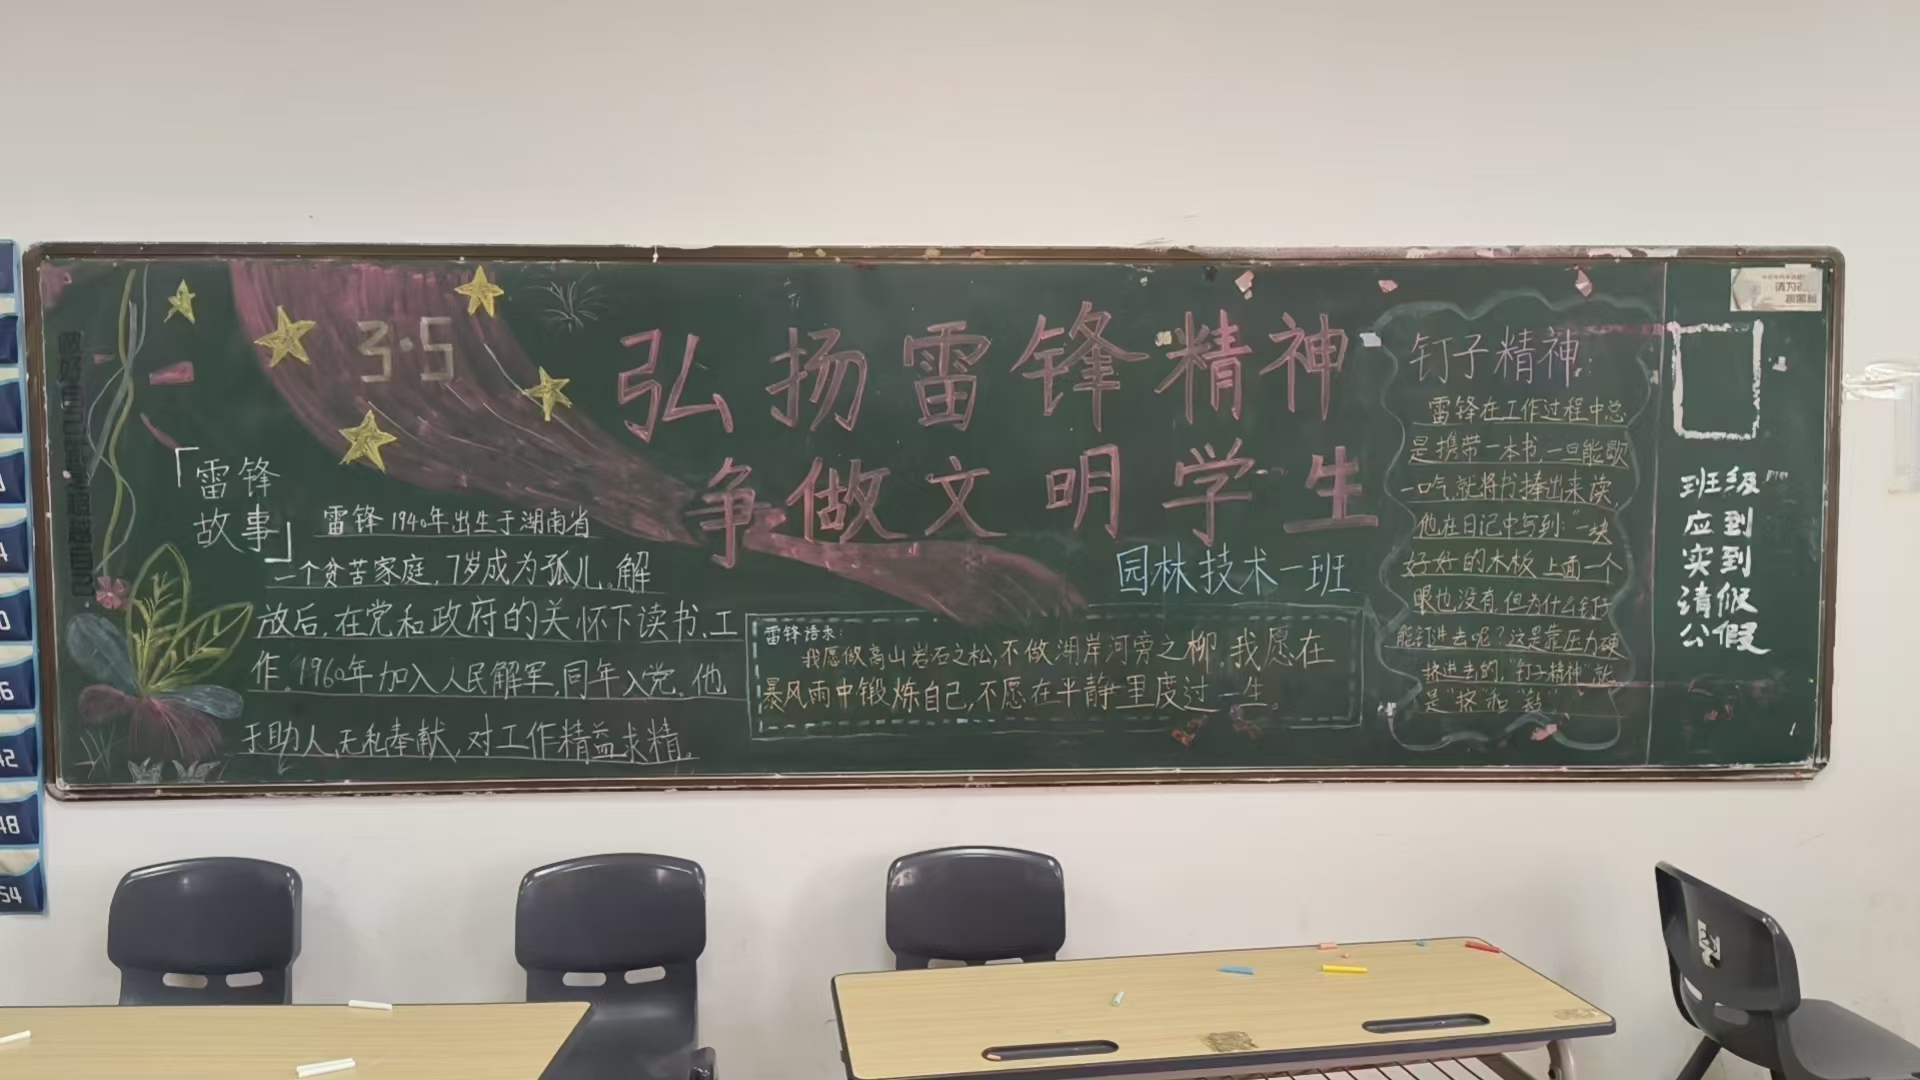 3·5
弘扬雷锋精神
争做文明学生
园林技术一班
「雷锋
故事」
雷锋1940年出生于湖南省
一个贫苦家庭,7岁成为孤儿。解
放后,在党和政府的关怀下读书、工
作。1960年加入人民解军,同年入党。他
于助人,无私奉献,对工作精益求精。
雷锋语录:
我愿做高山岩石之松,不做湖岸河旁之柳。我愿在
暴风雨中锻炼自己,不愿在平静里度过一生。
钉子精神:
雷锋在工作过程中总
是携带一本书,一旦能歇
一口气,就将书捧出来读,
他在日记中写到:"一块
好好的木板,上面一个
眼也没有,但为什么钉子
能钉进去呢?这是靠压力硬
挤进去的,"钉子精神"就
是"挤"和"钻"
班级
应到
实到
请假
公假
48
54